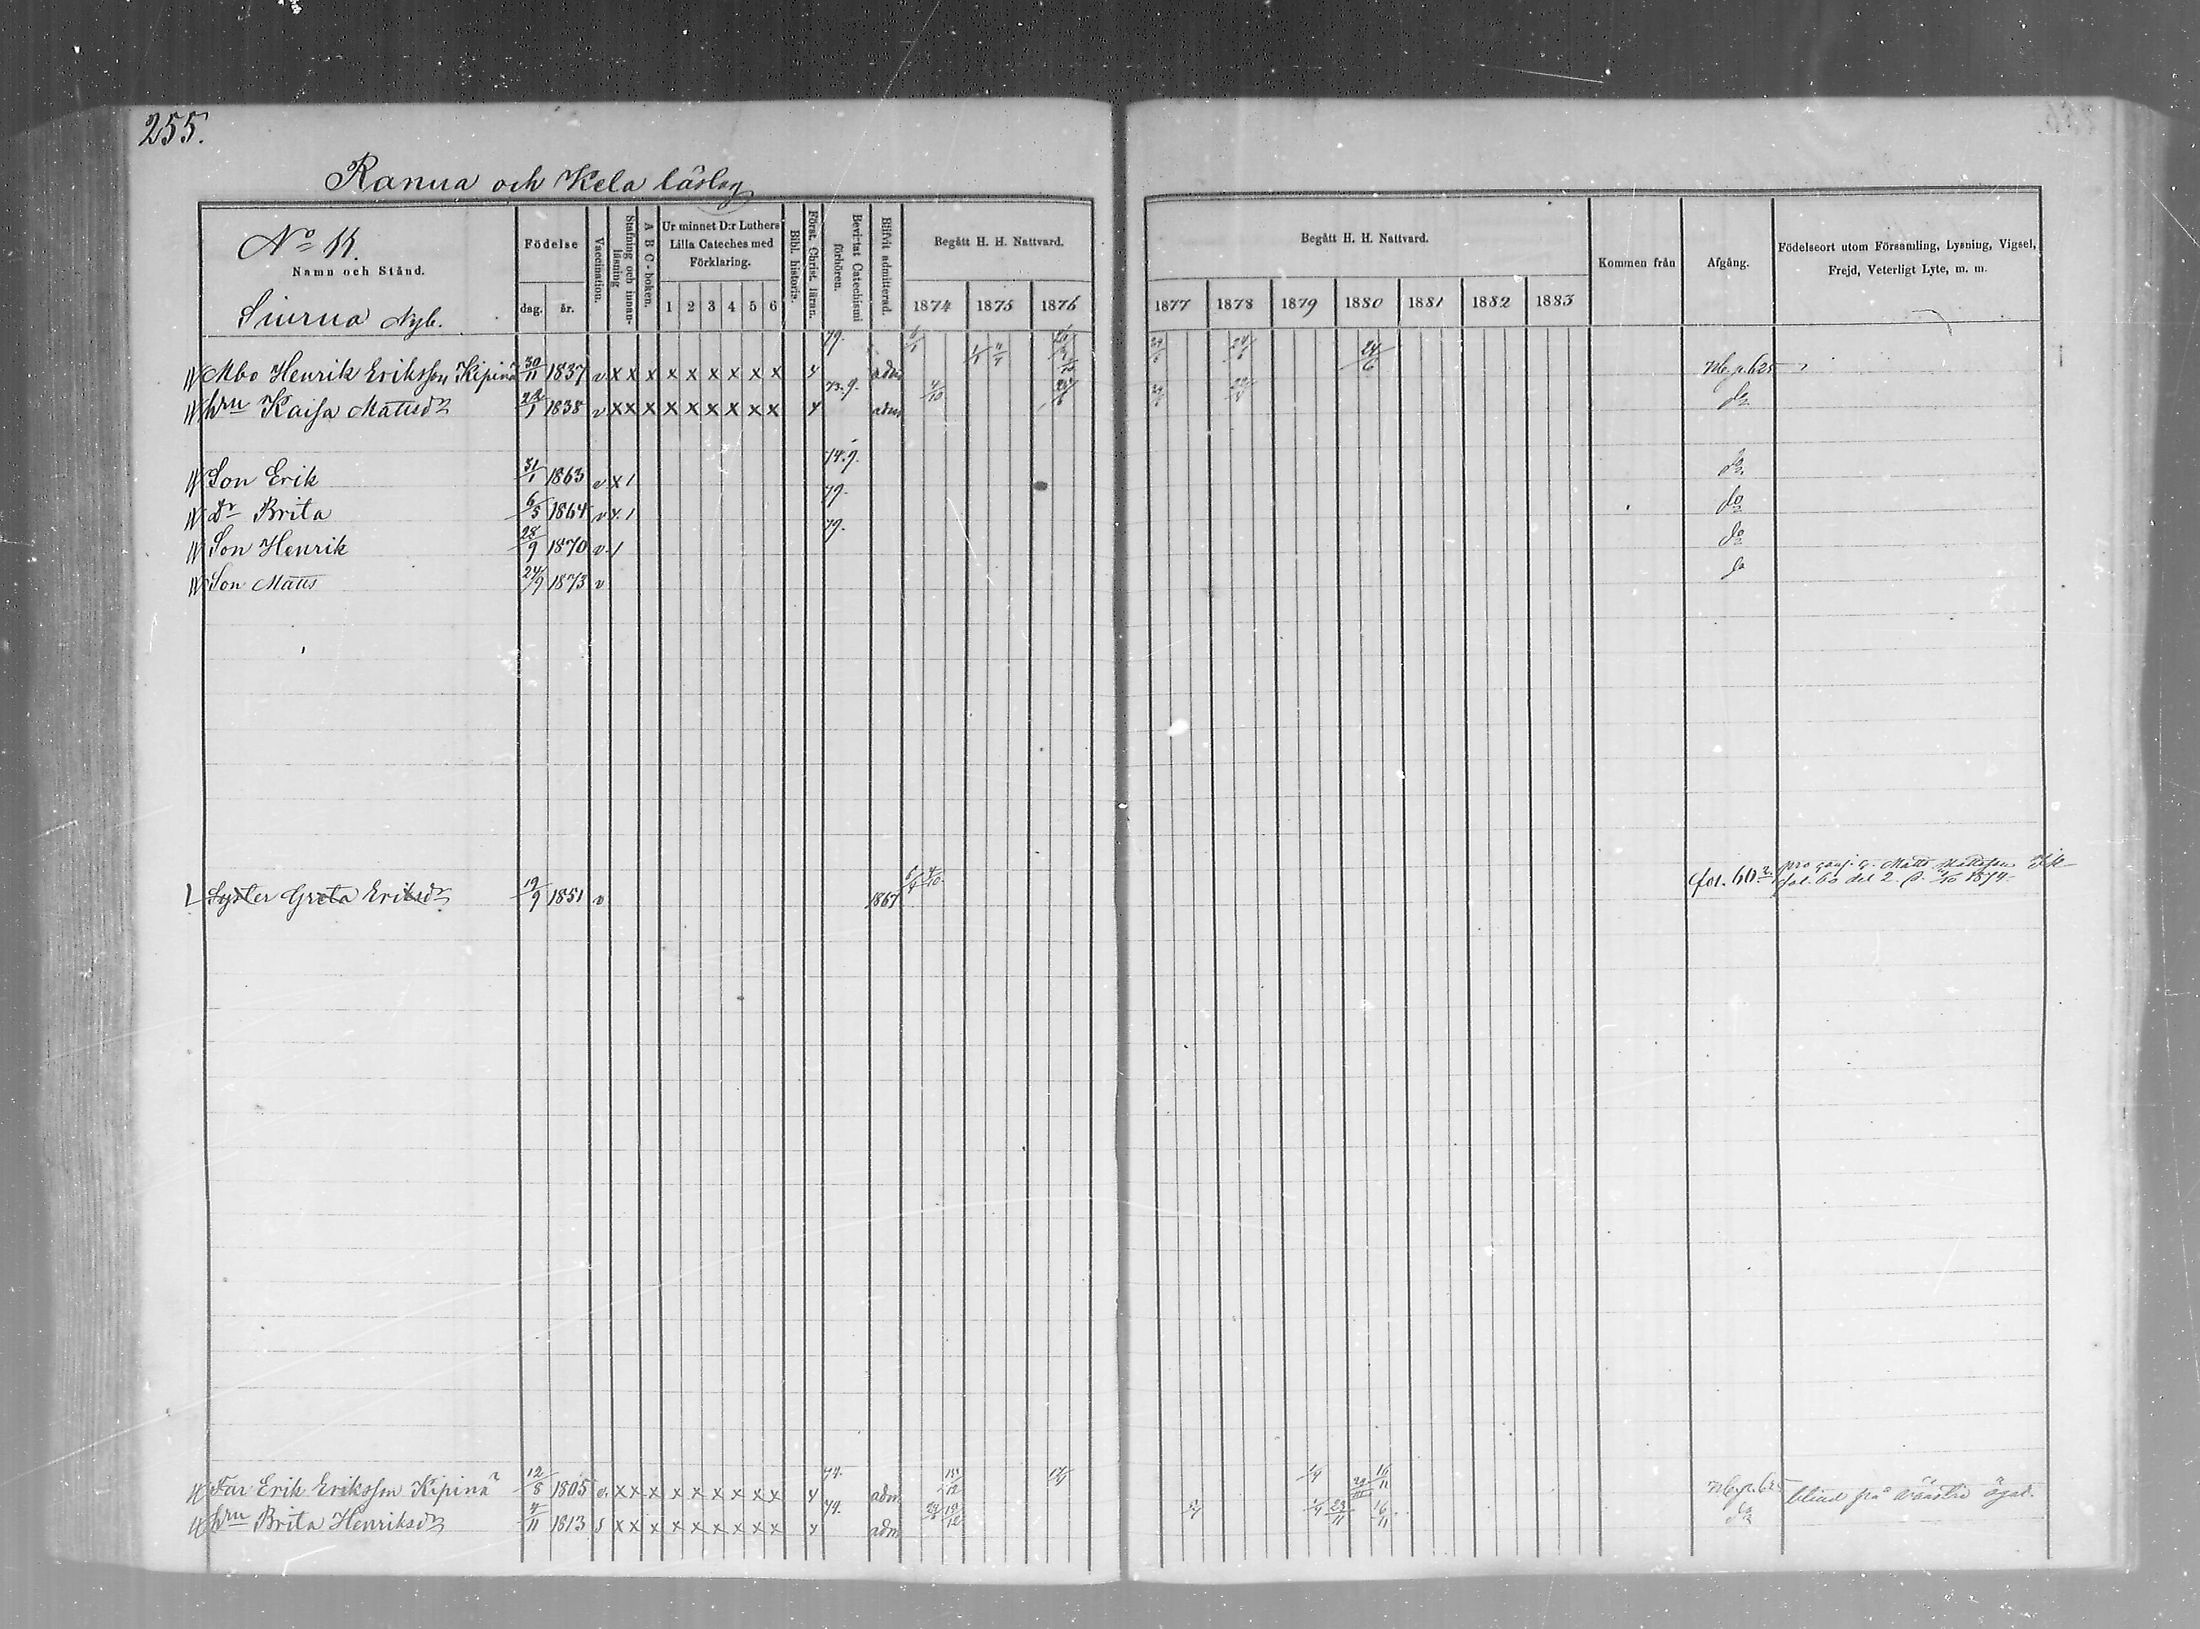 255.
Ranua och Kela läslag
No 11.
Namn och Stånd.
Födelse
dag. år.
Vaccination.
Stafning och innan-läsning
A B C-boken.
Ur minnet D:r Luthers
Lilla Cateches med
Förklaring.
1 2 3 4 5 6
Bibl. historie.
Först. Christ. läran.
Bevistat Catechismi förhören.
Blifvit admitterad.
Begått H. H. Nattvard.
1874 1875 1876
Begått H. H. Nattvard.
1877 1878 1879 1880 1881 1882 1883
Kommen från
Afgång.
Födelseort utom Församling, Lysning, Vigsel,
Frejd, Veterligt Lyte, m. m.
Siurua Nyb.
Mbo Henrik Eriksson Kipinä 30/11 1837 v x x x x x x x x x 4 79. adm 24/6 24/6 24/6 Nb. p. 625
hru Kaisa Mattsdr 1838 v x x x x x x x x x 4 73.9. adm 4/10 do
Son Erik 31/1 1863 v x 1 74.9. do
Dr Brita 6/5 1864 v x. 1 79. do
Son Henrik 28/9 1870 v. 1 79. do
Son Matts 24/9 1873 v do
Syster Greta Eriksdr 19/9 1851 v 1867 4/10. fol. 60 Matts Mattsson
fol. 60 del 2. 1874.
Far Erik Eriksson Kipinä 12/8 1805 v. x x x x x x x x x 4 74. adm 16/11 Nb. p. 625 blind på vänstra ögat.
hru Brita Henriksdr 4/11 1813 s x x x x x x x x x 4 79. adm 23/11 16/11 do